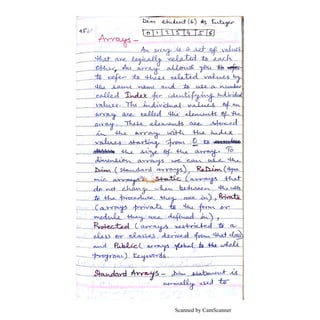 Dim Student(6) As Integer
0 1 2 3 4 5 6
Arrays -
An array is a set of values
that are logically related to each
other. An array allows you to refer
to refer to these related values by
the same name and to use a number
called Index for identifying individual
values. The individual values of an
array are called the elements of the
array. These elements are stored
in the array with the index
values starting from 0 to
the size of the array. To
dimension arrays we can use the
Dim (standard arrays), ReDim (dyna
mic arrays), Static (arrays that
do not change when between the calls
to the procedure they are in), Private
(arrays private to the form or
module they are defined in),
Protected (arrays restricted to a
class or classes derived from that class)
and Public (arrays global to the whole
program) keywords.
Standard Arrays - Dim statement is
normally used to
Scanned by CamScanner